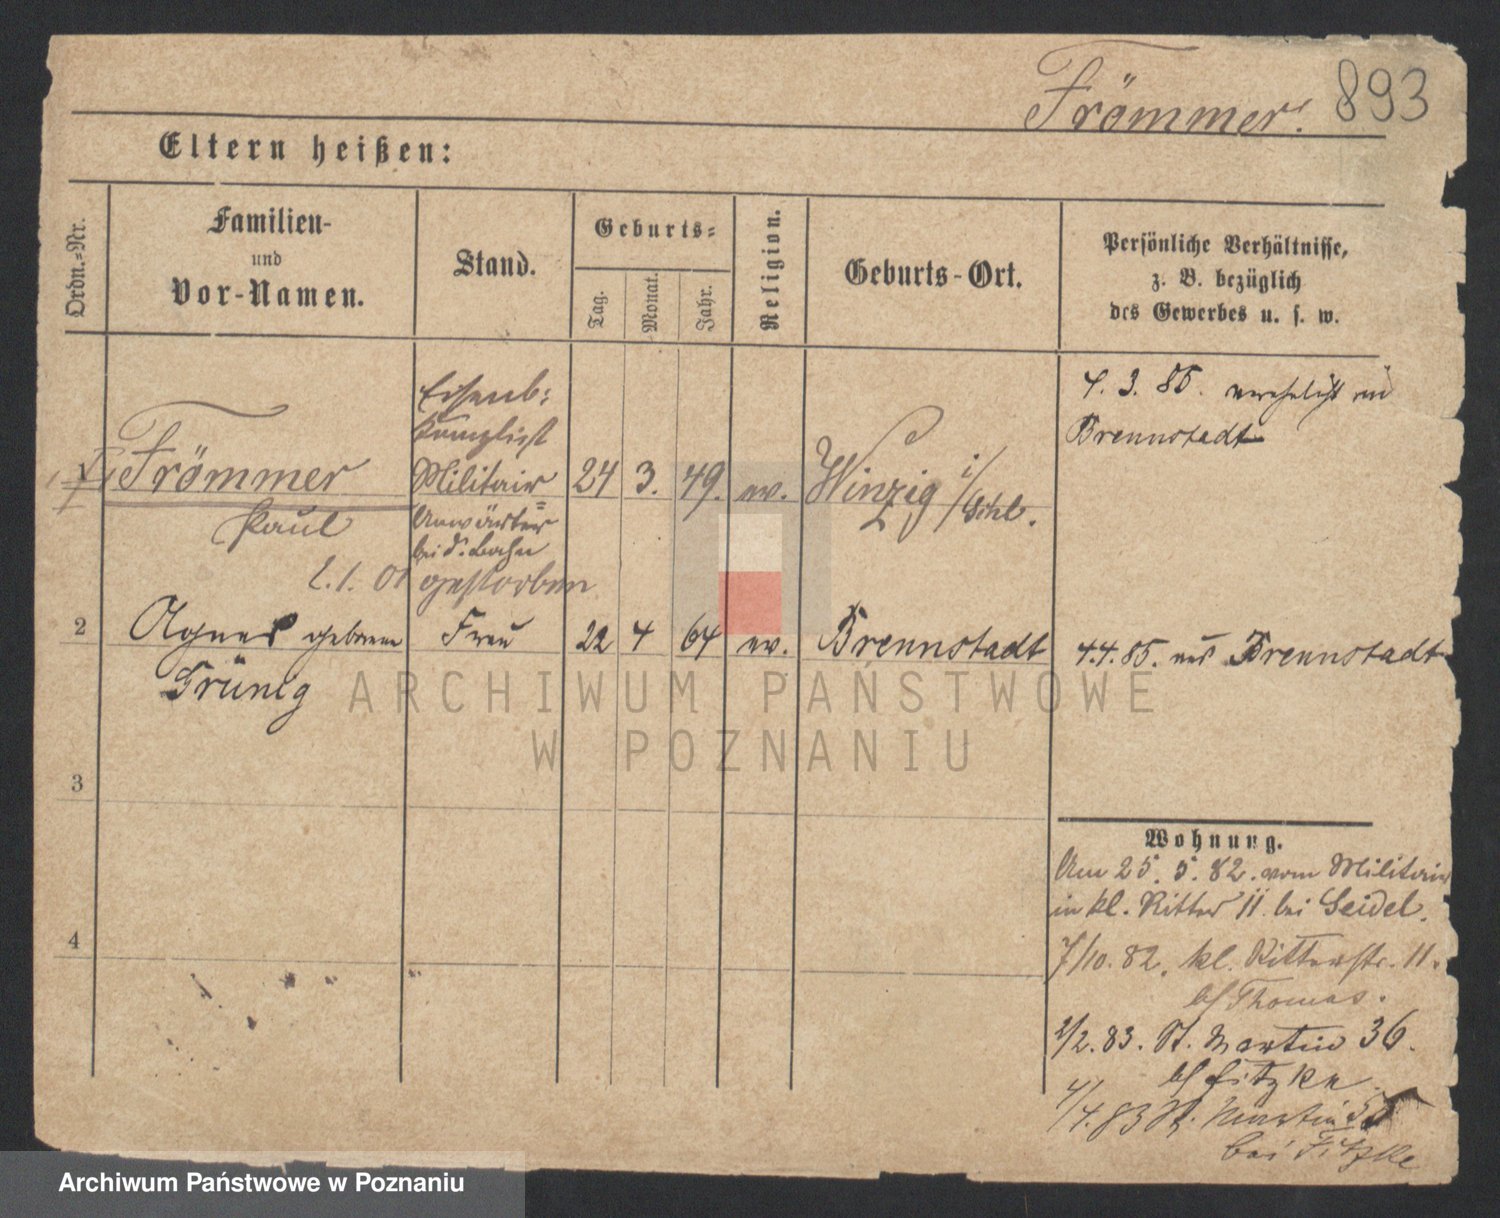 Frömmer. 893
Eltern heißen:
Ordn.=Nr.
Familien-
und
Vor-Namen.
Stand.
Geburts=
Tag.
Monat.
Jahr.
Religion.
Geburts-Ort.
Persönliche Verhältnisse,
z. B. bezüglich
des Gewerbes u. s. w.
4. 3. 85. verehelicht in
Brennstadt
Eisenb:
Kanzlist
1 Frömmer Militair 24 3. 49. ev. Winzig i/Schl.
Paul Anwärter
bei d. Bahn
2.1.01 gestorben
2 Agnes geborene Frau 22 4 64 ev. Brennstadt 4.4.85. aus Brennstadt
Grünig
3
Wohnung.
Am 25. 5. 82. vom Militair
in kl. Ritter 11. bei Seidel.
4
7/10. 82. kl. Ritterstr. 11.
b/ Thomas.
2/2. 83. St. Martin 36.
b/ Fitzke.
4/4. 83 St. Martin
bei Fitzke
ARCHIWUM PAŃSTWOWE
W POZNANIU
Archiwum Państwowe w Poznaniu